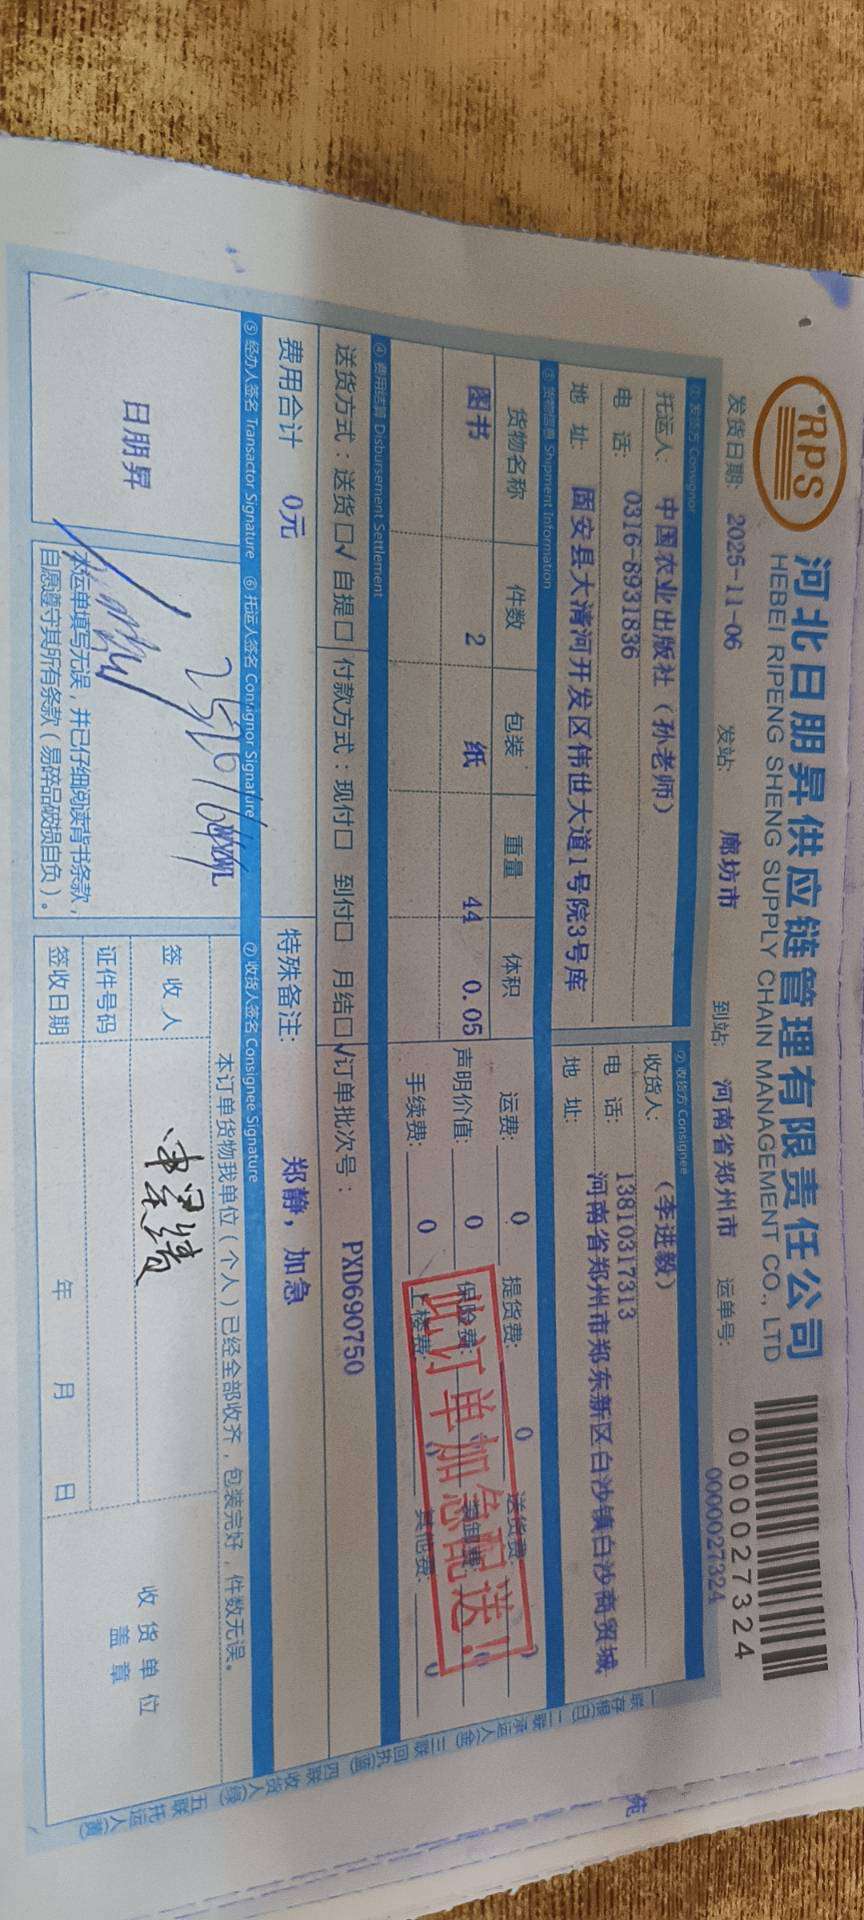 RPS
河北日朋昇供应链管理有限责任公司
HEBEI RIPENG SHENG SUPPLY CHAIN MANAGEMENT CO., LTD
0000027324
发货日期: 2025-11-06 发站: 廊坊市 到站: 河南省郑州市 运单号: 0000027324
① 发货方 Consignor ② 收货方 Consignee
托运人: 中国农业出版社（孙老师） 收货人: （李进毅）
电 话: 0316-8931836 电 话: 13810317313
地 址: 固安县大清河开发区伟世大道1号院3号库 地 址: 河南省郑州市郑东新区白沙镇白沙商贸城
苑
③ 货物信息 Shipment Information
货物名称 件数 包装 重量 体积 运费: 0 提货费: 0 送货费: 0
图书 2 纸 44 0.05 声明价值: 0 保险费: 0 装卸费: 0
手续费: 0 上楼费: 0 其他费: 0
此订单加急配送!!
④ 费用结算 Disbursement Settlement
送货方式：送货□√ 自提□ 付款方式：现付□ 到付□ 月结□√ 订单批次号： PXD690750
费用合计 0元 特殊备注: 郑静，加急
⑤ 经办人签名 Transactor Signature ⑥ 托运人签名 Consignor Signature ⑦ 收货人签名 Consignee Signature
日朋昇
本运单填写无误，并已仔细阅读背书条款，
自愿遵守其所有条款（易碎品破损自负）。
本订单货物我单位（个人）已经全部收齐，包装完好，件数无误。
签 收 人
证件号码
签收日期 年 月 日
收 货 单 位
盖 章
一联存根(白) 二联承运人(金) 三联回执(蓝) 四联收货人(绿) 五联托运人(黄)